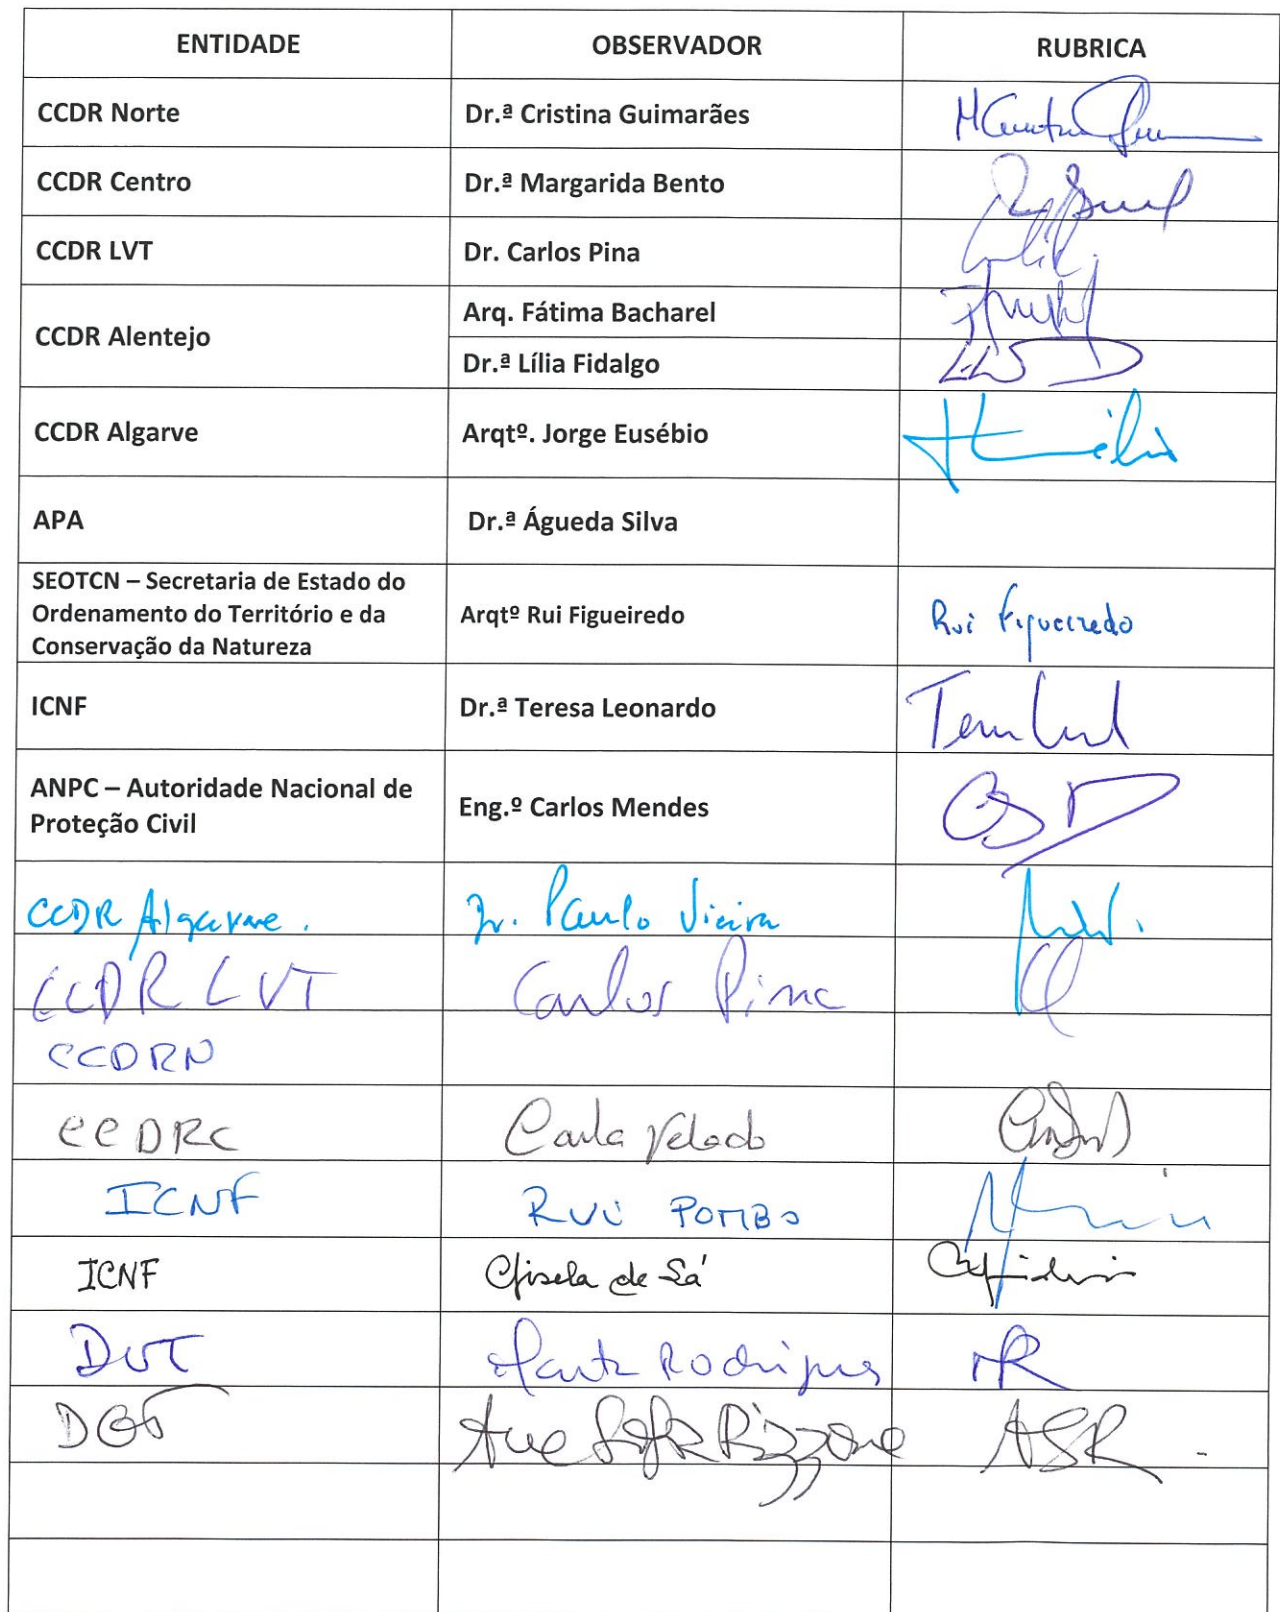 ENTIDADE OBSERVADOR RUBRICA
CCDR Norte Dr.ª Cristina Guimarães
CCDR Centro Dr.ª Margarida Bento
CCDR LVT Dr. Carlos Pina
CCDR Alentejo
Arq. Fátima Bacharel
Dr.ª Lília Fidalgo
CCDR Algarve Arqtº. Jorge Eusébio
APA Dr.ª Águeda Silva
SEOTCN – Secretaria de Estado do
Ordenamento do Território e da
Conservação da Natureza
Arqtº Rui Figueiredo Rui Figueiredo
ICNF Dr.ª Teresa Leonardo
ANPC – Autoridade Nacional de
Proteção Civil
Eng.º Carlos Mendes
CCDR Algarve. Dr. Paulo Vieira
CCDR LVT Carlos Pina
CCDRN
CCDRC Carla Velado
ICNF RUI POMBO
ICNF Gisela de Sá
DGT Marta Rodrigues MR
DGT Ana Sofia Rizzone ASR